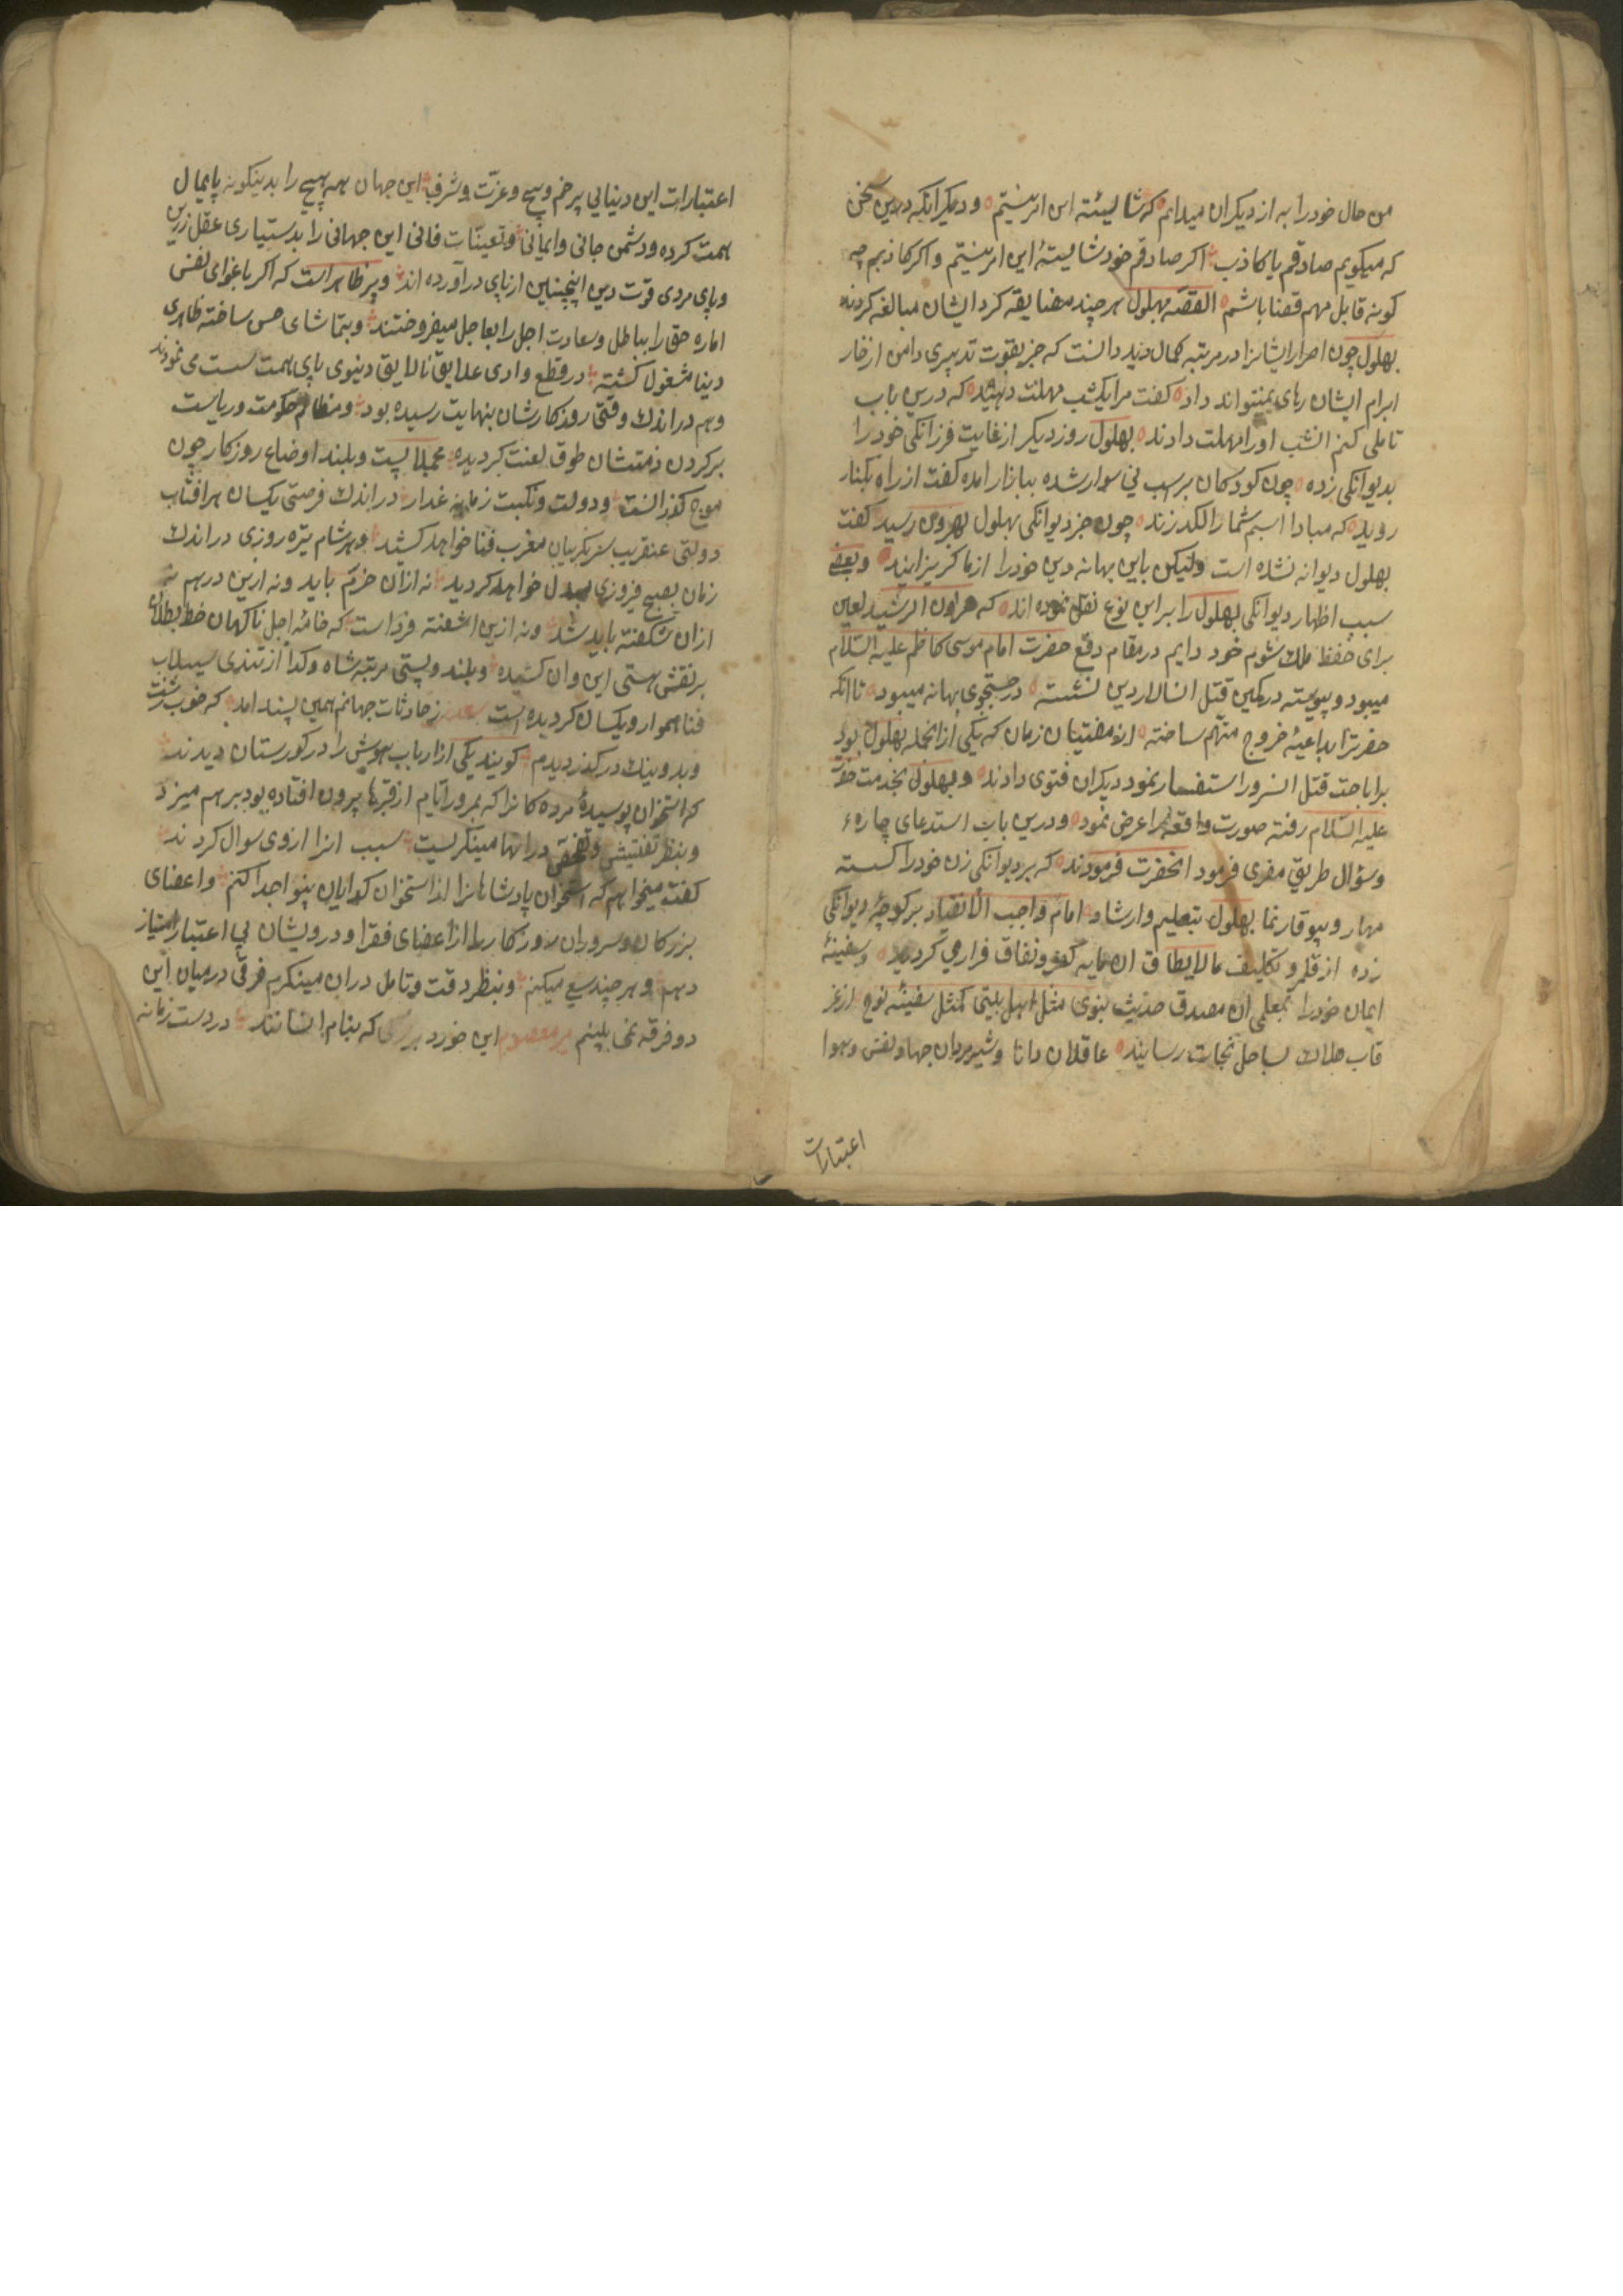 من حال خود را به از دیکران میدانم که شایسته این امر نیستم و دیکر آنکه درین سخن
که میکویم صادقم یا کاذب اکر صادقم خود شایستهٔ این امر نیستم و اکر کاذبم چه
کونه قابل مهم قضا باشم القصه بهلول هر چند مضایقه کرد ایشان مبالغه کردند
بهلول چون اصرار ایشانرا در مرتبه کمال دید دانست که جز بقوت تدبیری دامن از خار
ابرام ایشان رهای نمیتواند داد کفت مرا یکشب مهلت دهید که درین باب
تاملی کنم انشب اورا مهلت دادند بهلول روز دیکر از غایت فرزانکی خود را
بدیوانکی زده چون کودکان بر اسب نی سوار شده ببازار امده کفت از راه بکنار
روید که مبادا اسبم شما را لکد زند چون خبر دیوانکی بهلول بهرون رسید کفت
بهلول دیوانه نشده است ولیکن باین بهانه دین خود را از ما کریزانید و بعضی
سبب اظهار دیوانکی بهلول را براین نوع نقل نموده اند که هرون الرشید لعین
برای حفظ ملک شوم خود دایم در مقام دفع حضرت امام موسی کاظم علیه السّلام
میبود و پیوسته در کمین قتل انسالار دین نشسته در جستجوی بهانه میبود تا انکه
حضرترا بداعیهٔ خروج متهم ساخته از مفتیان زمان که یکی از انجمله بهلول بود
براباحت قتل انسرور استفسار نمود دیکران فتوی دادند و بهلول بخدمت حضرت
علیه السّلام رفته صورت واقعه را عرض نمود و درین باب استدعای چارهٔ
و سؤال طریق مفری فرمود انحضرت فرمودند که بر دیوانکی زن خود را کسسته
مهار و بیوقار نما بهلول بتعلیم و ارشاد امام واجب الانقیاد بر کوچهٔ دیوانکی
زده از قلمرو تکلیف مالایطاق ان مایه کفر و نفاق فراری کردید و سفینهٔ
ایمان خود را بمعلمی ان مصدق حدیث نبوی مثل اهل بیتی کمثل سفینهٔ نوح از غر
قاب هلاک بساحل نجات رسانید عاقلان دانا و شیرمردان جهاد نفس و هوا
اعتبارات
اعتبارات این دنیایی پر خم و پیچ و عزّت و شرف این جهان همه هیچ را بدینکونه پایمال
همت کرده و دشمن جانی و ایمانی و تعینّات فانی این جهانی را بدستیاری عقل زرین
و پای مردی قوت دین اینچنین از پای در آورده اند و پر ظاهر است که اکر باغوای نفس
اماره حق را بباطل و سعادت اجل را بعاجل میفروختند و بتماشای حسن ساخته ظاهری
دنیا مشغول کشته در قطع وادی علایق نالایق دنیوی پای همت سست می نمودند
و هم در اندک وقتی روزکارشان بنهایت رسیده بود و مظالم حکومت و ریاست
بر کردن ذمتشان طوق لعنت کردیده مجملا پست و بلند اوضاع روزکار چون
موج کذرانست و دولت و نکبت زمانه غدار در اندک فرصتی یکسان هر افتاب
دولتی عنقریب سر بکریبان مغرب فنا خواهد کشید و هر شام تیره روزی در اندک
زمان بصبح فیروزی مبدل خواهد کردید نه ازان خرم باید و نه ازین درهم نه
ازان شکفته باید شد و نه ازین اشفته فرداست که خامهٔ اجل ناکهان خط بطلان
بر نقش هستی این و ان کشیده و بلند و پستی مرتبه شاه و کدا از تندی سیلاب
فنا هموار و یکسان کردیده است ز حادثات جهانم همین پسند امد که خوب و زشت
و بد و نیک در کذر دیدم کویند یکی از ارباب هوش را در کورستان دیدند
که استخوان پوسیدهٔ مرده کانرا که بمرور ایّام از قبرها بیرون افتاده بود بر هم میزد
و بنظر تفتیش و تحقیق در انها مینکریست سبب انرا از وی سوال کردند
کفت میخواهم که استخوان پادشاهانرا از استخوان کدایان بینوا جدا کنم و اعضای
بزرکان و سروران روزکار را از اعضای فقرا و درویشان بی اعتبار امتیاز
دهم و هر چند سعی میکنم و بنظر دقت و تامل در ان مینکرم فرقی در میان این
دو فرقه نمی بینم این خورد بزرکی که بنام انسانند در دست زمانه